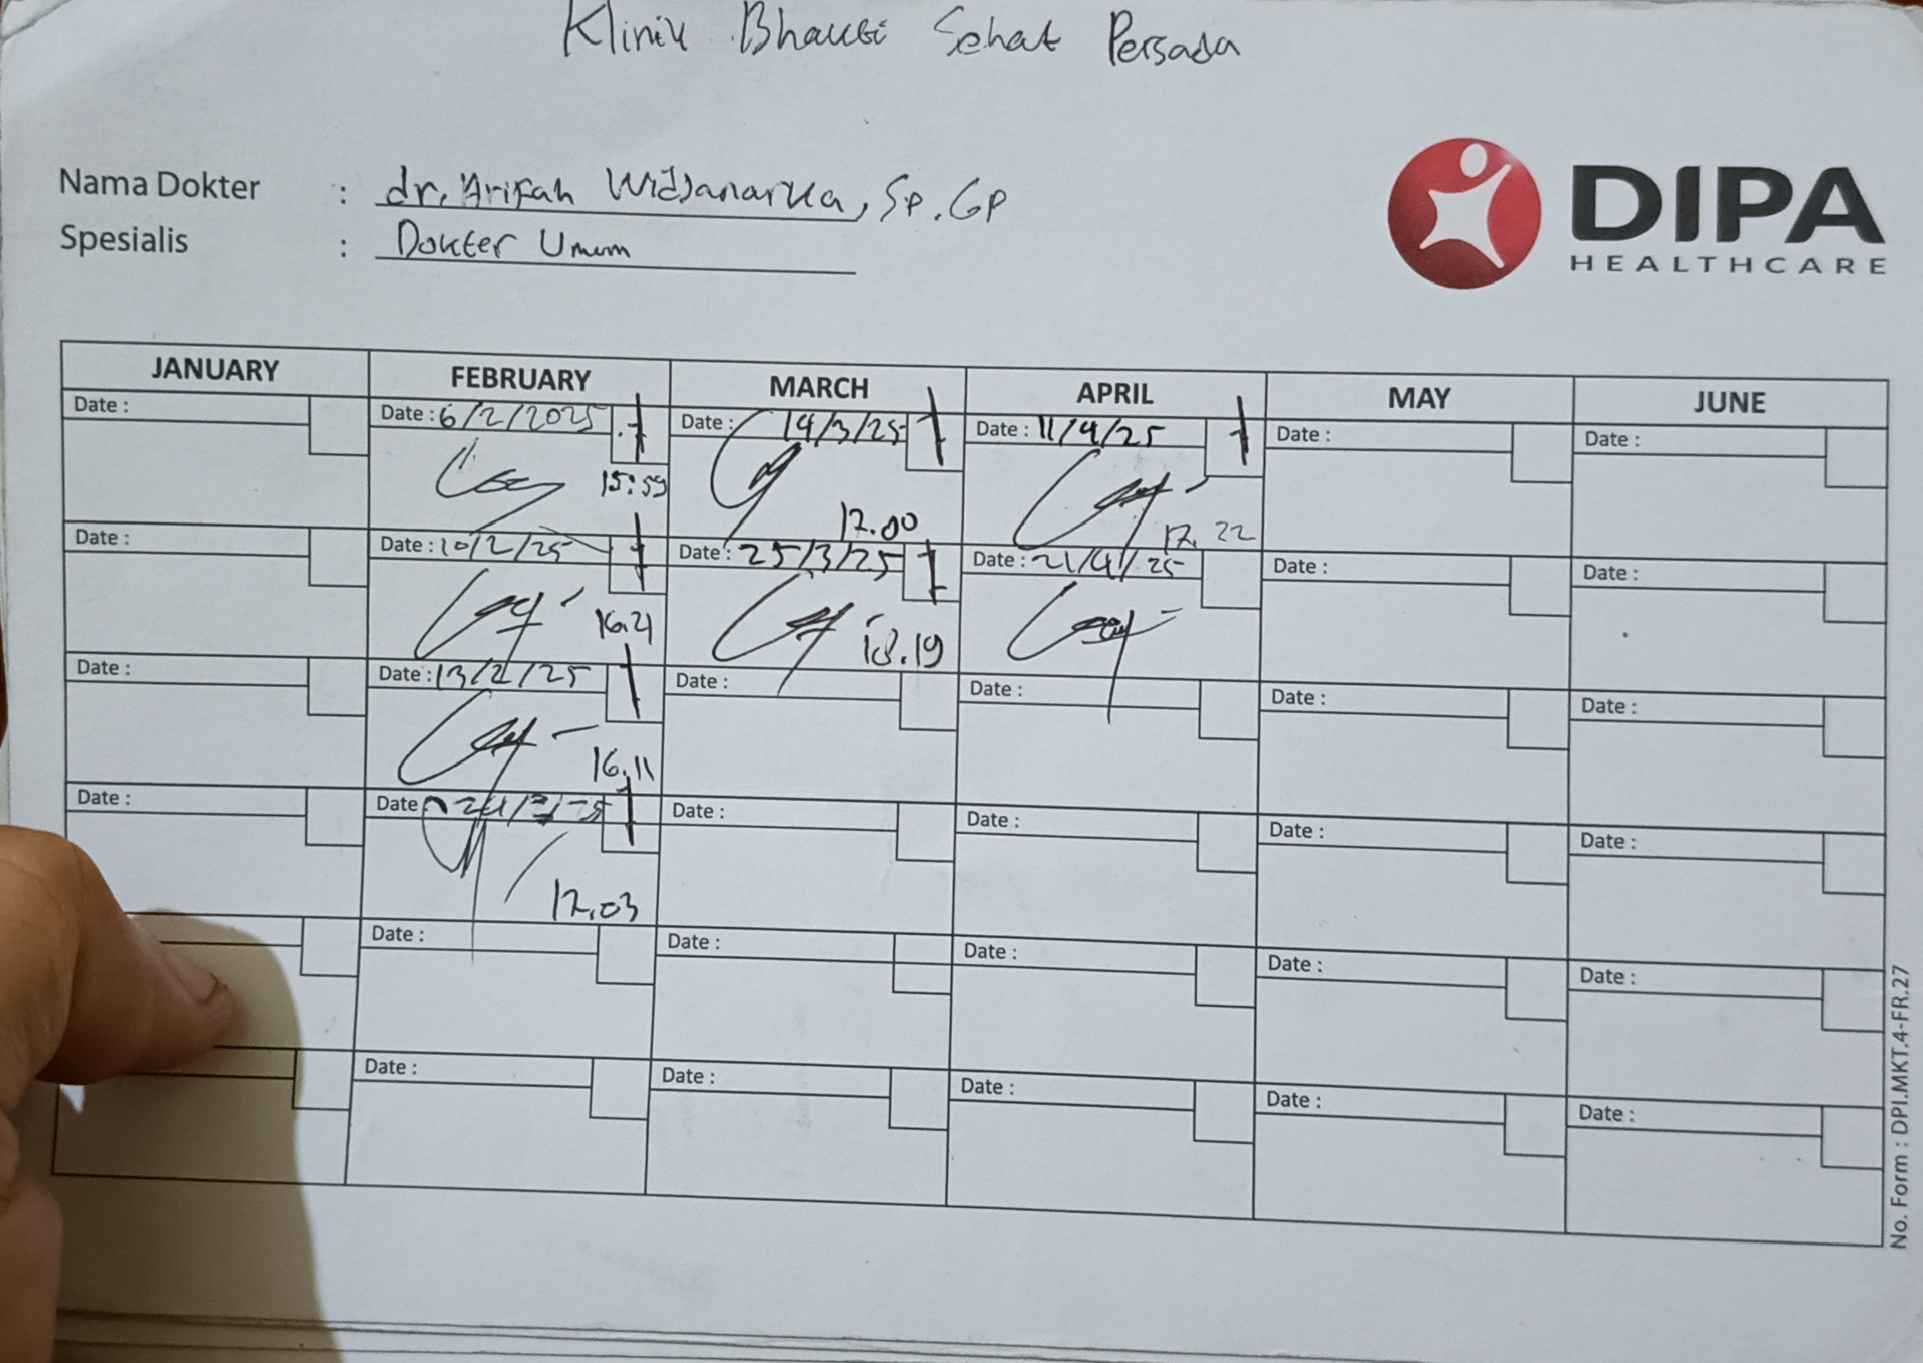 Klinik Bhakti Sehat Persada
DIPA
HEALTHCARE
Nama Dokter : dr. Arifah Widjanarka, Sp.GP
Spesialis : Dokter Umum
JANUARY FEBRUARY MARCH APRIL MAY JUNE
Date : Date : 6/2/2025 Date : 14/3/25 Date : 11/4/25 Date : Date :
15:59 17.00 17.22
Date : Date : 10/2/25 Date : 25/3/25 Date : 21/4/25 Date : Date :
16.21 18.19
Date : Date : 13/2/25 Date : Date : Date : Date :
16.11
Date : Date 24/2/25 Date : Date : Date : Date :
17.03
Date : Date : Date : Date : Date :
Date : Date : Date : Date : Date :
No. Form : DPI.MKT.4-FR.27